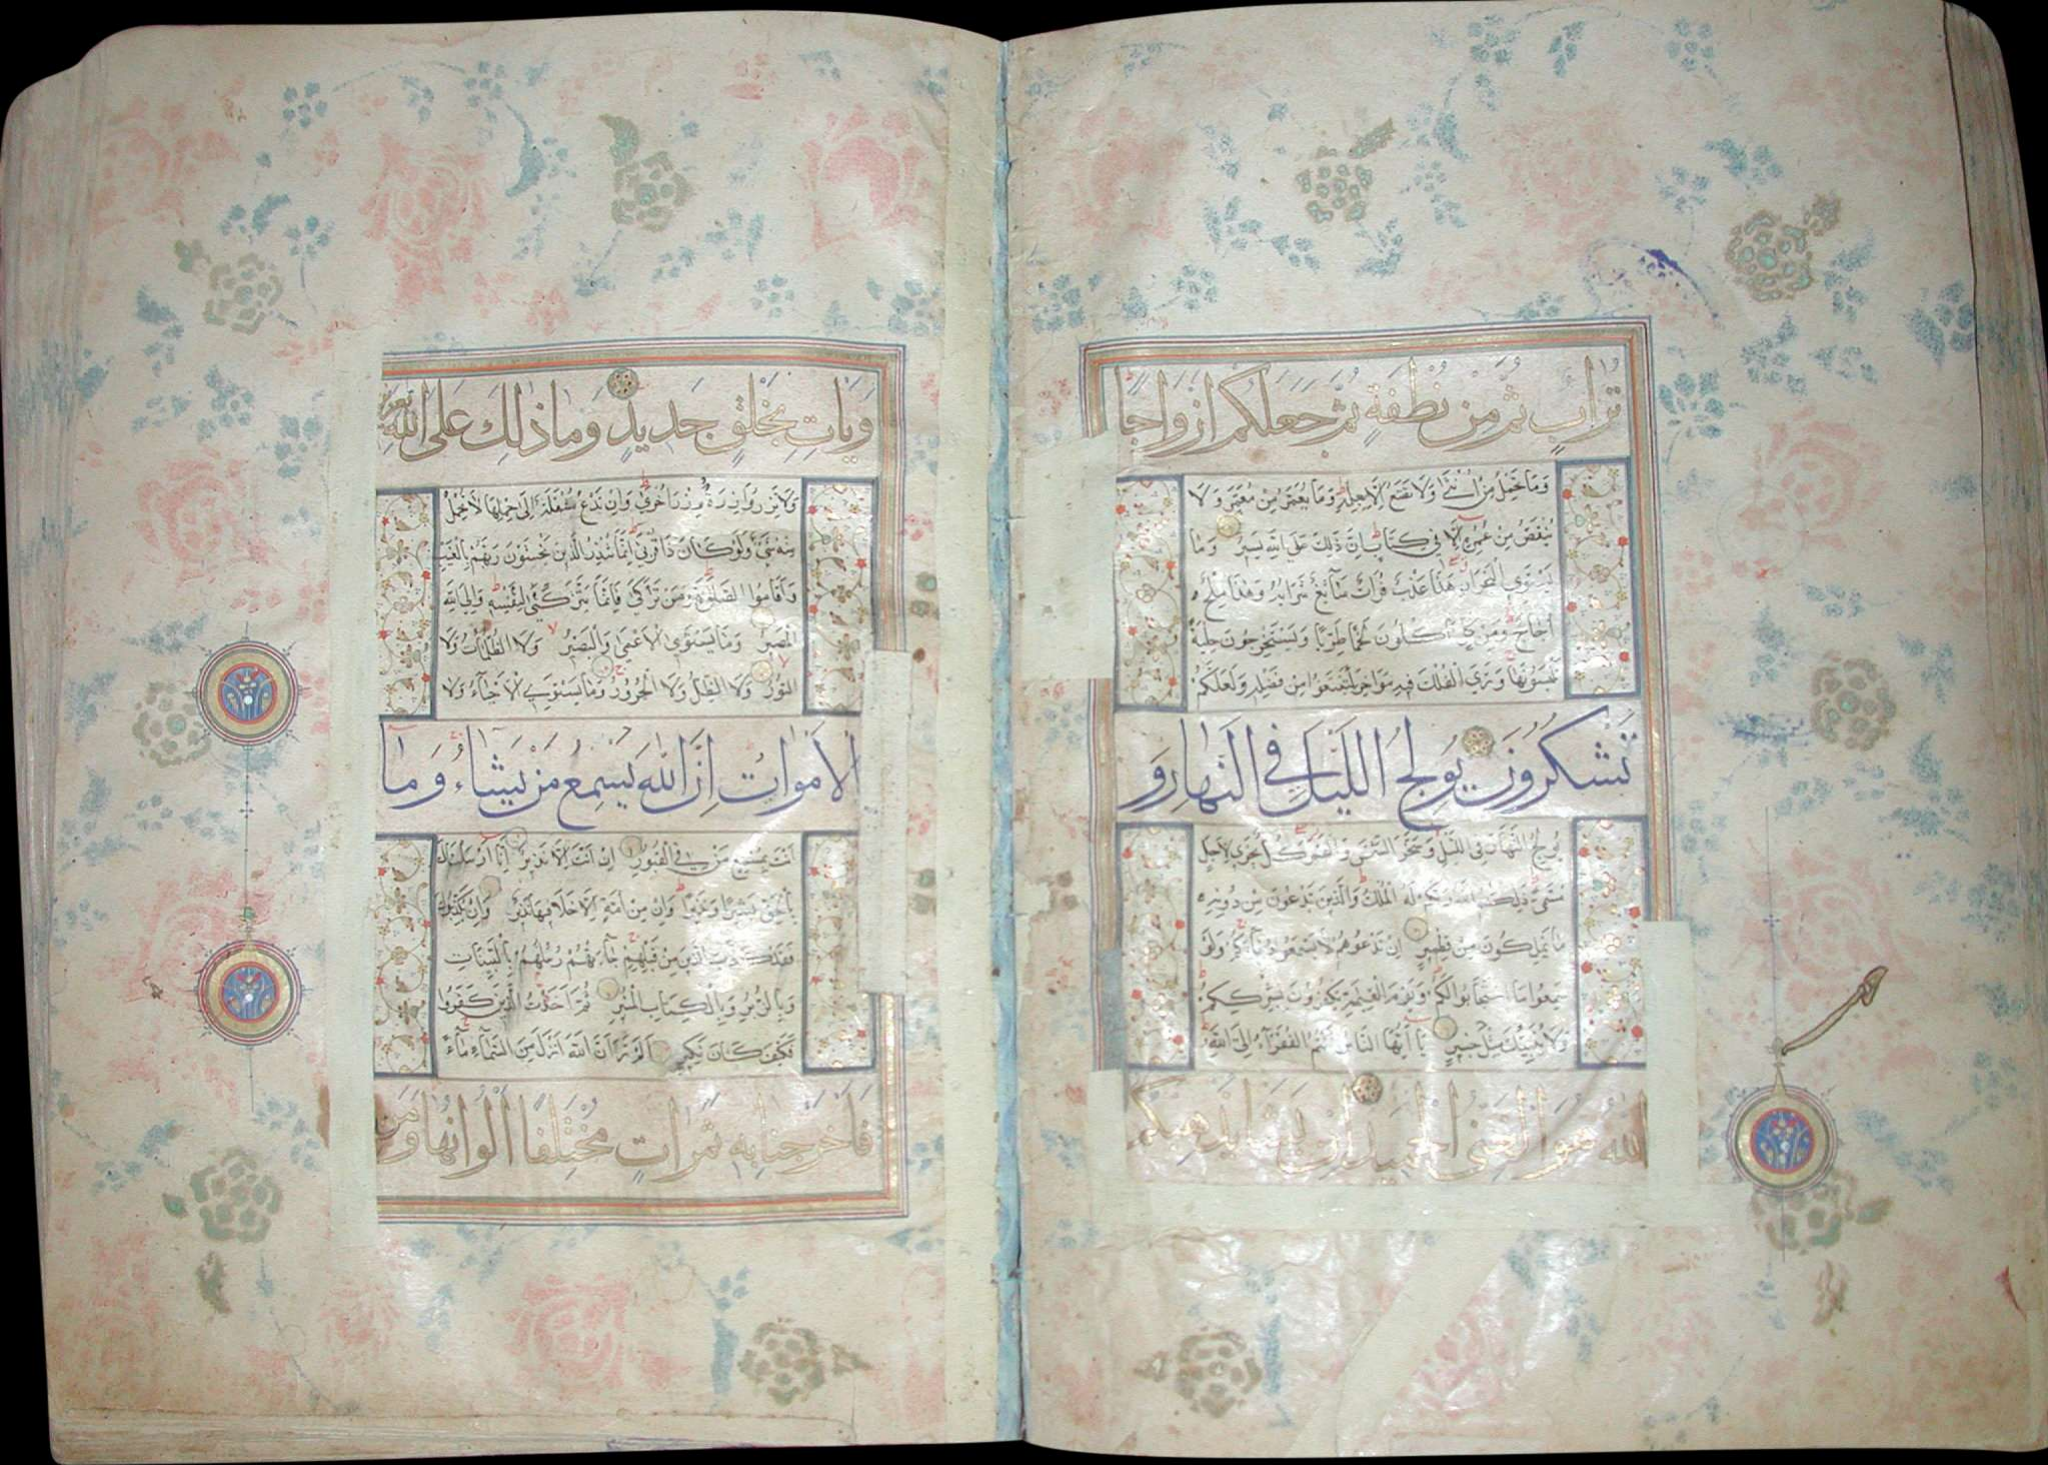 تُرَابٍ ثُمَّ مِنْ نُطْفَةٍ ثُمَّ جَعَلَكُمْ اَزْوَاجًا
وَمَا تَحْمِلُ مِنْ اُنْثٰى وَلَا تَضَعُ اِلَّا بِعِلْمِهٖ وَمَا يُعَمَّرُ مِنْ مُعَمَّرٍ وَلَا
يُنْقَصُ مِنْ عُمُرِهٖ اِلَّا فِي كِتَابٍ اِنَّ ذٰلِكَ عَلَى اللهِ يَسِيرٌ وَمَا
يَسْتَوِي الْبَحْرَانِ هٰذَا عَذْبٌ فُرَاتٌ سَآئِغٌ شَرَابُهُ وَهٰذَا مِلْحٌ
اُجَاجٌ وَمِنْ كُلٍّ تَاْكُلُونَ لَحْمًا طَرِيًّا وَتَسْتَخْرِجُونَ حِلْيَةً
تَلْبَسُونَهَا وَتَرَى الْفُلْكَ فِيهِ مَوَاخِرَ لِتَبْتَغُوا مِنْ فَضْلِهٖ وَلَعَلَّكُمْ
تَشْكُرُونَ يُولِجُ اللَّيْلَ فِي النَّهَارِ وَ
يُولِجُ النَّهَارَ فِي اللَّيْلِ وَسَخَّرَ الشَّمْسَ وَالْقَمَرَ كُلٌّ يَجْرِي لِاَجَلٍ
مُسَمًّى ذٰلِكُمُ اللهُ رَبُّكُمْ لَهُ الْمُلْكُ وَالَّذِينَ تَدْعُونَ مِنْ دُونِهٖ
مَا يَمْلِكُونَ مِنْ قِطْمِيرٍ اِنْ تَدْعُوهُمْ لَا يَسْمَعُوا دُعَآءَكُمْ وَلَوْ
سَمِعُوا مَا اسْتَجَابُوا لَكُمْ وَيَوْمَ الْقِيٰمَةِ يَكْفُرُونَ بِشِرْكِكُمْ
وَلَا يُنَبِّئُكَ مِثْلُ خَبِيرٍ يَا اَيُّهَا النَّاسُ اَنْتُمُ الْفُقَرَآءُ اِلَى اللهِ
اللهُ هُوَ الْغَنِيُّ الْحَمِيدُ اِنْ يَشَاْ يُذْهِبْكُمْ
وَيَاْتِ بِخَلْقٍ جَدِيدٍ وَمَا ذٰلِكَ عَلَى اللهِ بِعَزِيزٍ
وَلَا تَزِرُ وَازِرَةٌ وِزْرَ اُخْرٰى وَاِنْ تَدْعُ مُثْقَلَةٌ اِلٰى حِمْلِهَا لَا يُحْمَلْ
مِنْهُ شَيْءٌ وَلَوْ كَانَ ذَا قُرْبٰى اِنَّمَا تُنْذِرُ الَّذِينَ يَخْشَوْنَ رَبَّهُمْ بِالْغَيْبِ
وَاَقَامُوا الصَّلٰوةَ وَمَنْ تَزَكّٰى فَاِنَّمَا يَتَزَكّٰى لِنَفْسِهٖ وَاِلَى اللهِ
الْمَصِيرُ وَمَا يَسْتَوِي الْاَعْمٰى وَالْبَصِيرُ وَلَا الظُّلُمَاتُ وَلَا
النُّورُ وَلَا الظِّلُّ وَلَا الْحَرُورُ وَمَا يَسْتَوِي الْاَحْيَآءُ وَلَا
الْاَمْوَاتُ اِنَّ اللهَ يُسْمِعُ مَنْ يَشَاءُ وَمَا
اَنْتَ بِمُسْمِعٍ مَنْ فِي الْقُبُورِ اِنْ اَنْتَ اِلَّا نَذِيرٌ اِنَّا اَرْسَلْنَاكَ
بِالْحَقِّ بَشِيرًا وَنَذِيرًا وَاِنْ مِنْ اُمَّةٍ اِلَّا خَلَا فِيهَا نَذِيرٌ وَاِنْ يُكَذِّبُوكَ
فَقَدْ كَذَّبَ الَّذِينَ مِنْ قَبْلِهِمْ جَآءَتْهُمْ رُسُلُهُمْ بِالْبَيِّنَاتِ
وَبِالزُّبُرِ وَبِالْكِتَابِ الْمُنِيرِ ثُمَّ اَخَذْتُ الَّذِينَ كَفَرُوا
فَكَيْفَ كَانَ نَكِيرِ اَلَمْ تَرَ اَنَّ اللهَ اَنْزَلَ مِنَ السَّمَآءِ مَآءً
فَاَخْرَجْنَا بِهٖ ثَمَرَاتٍ مُخْتَلِفًا اَلْوَانُهَا وَمِنَ